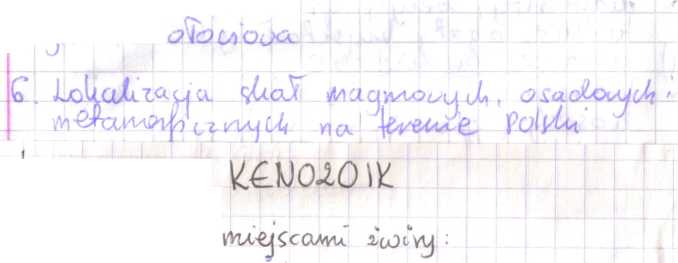 ołociova
6. Lokalizacja skał magmowych, osadowych i
metamorficznych na terenie Polski
KENOZOIK
miejscami żwiry: